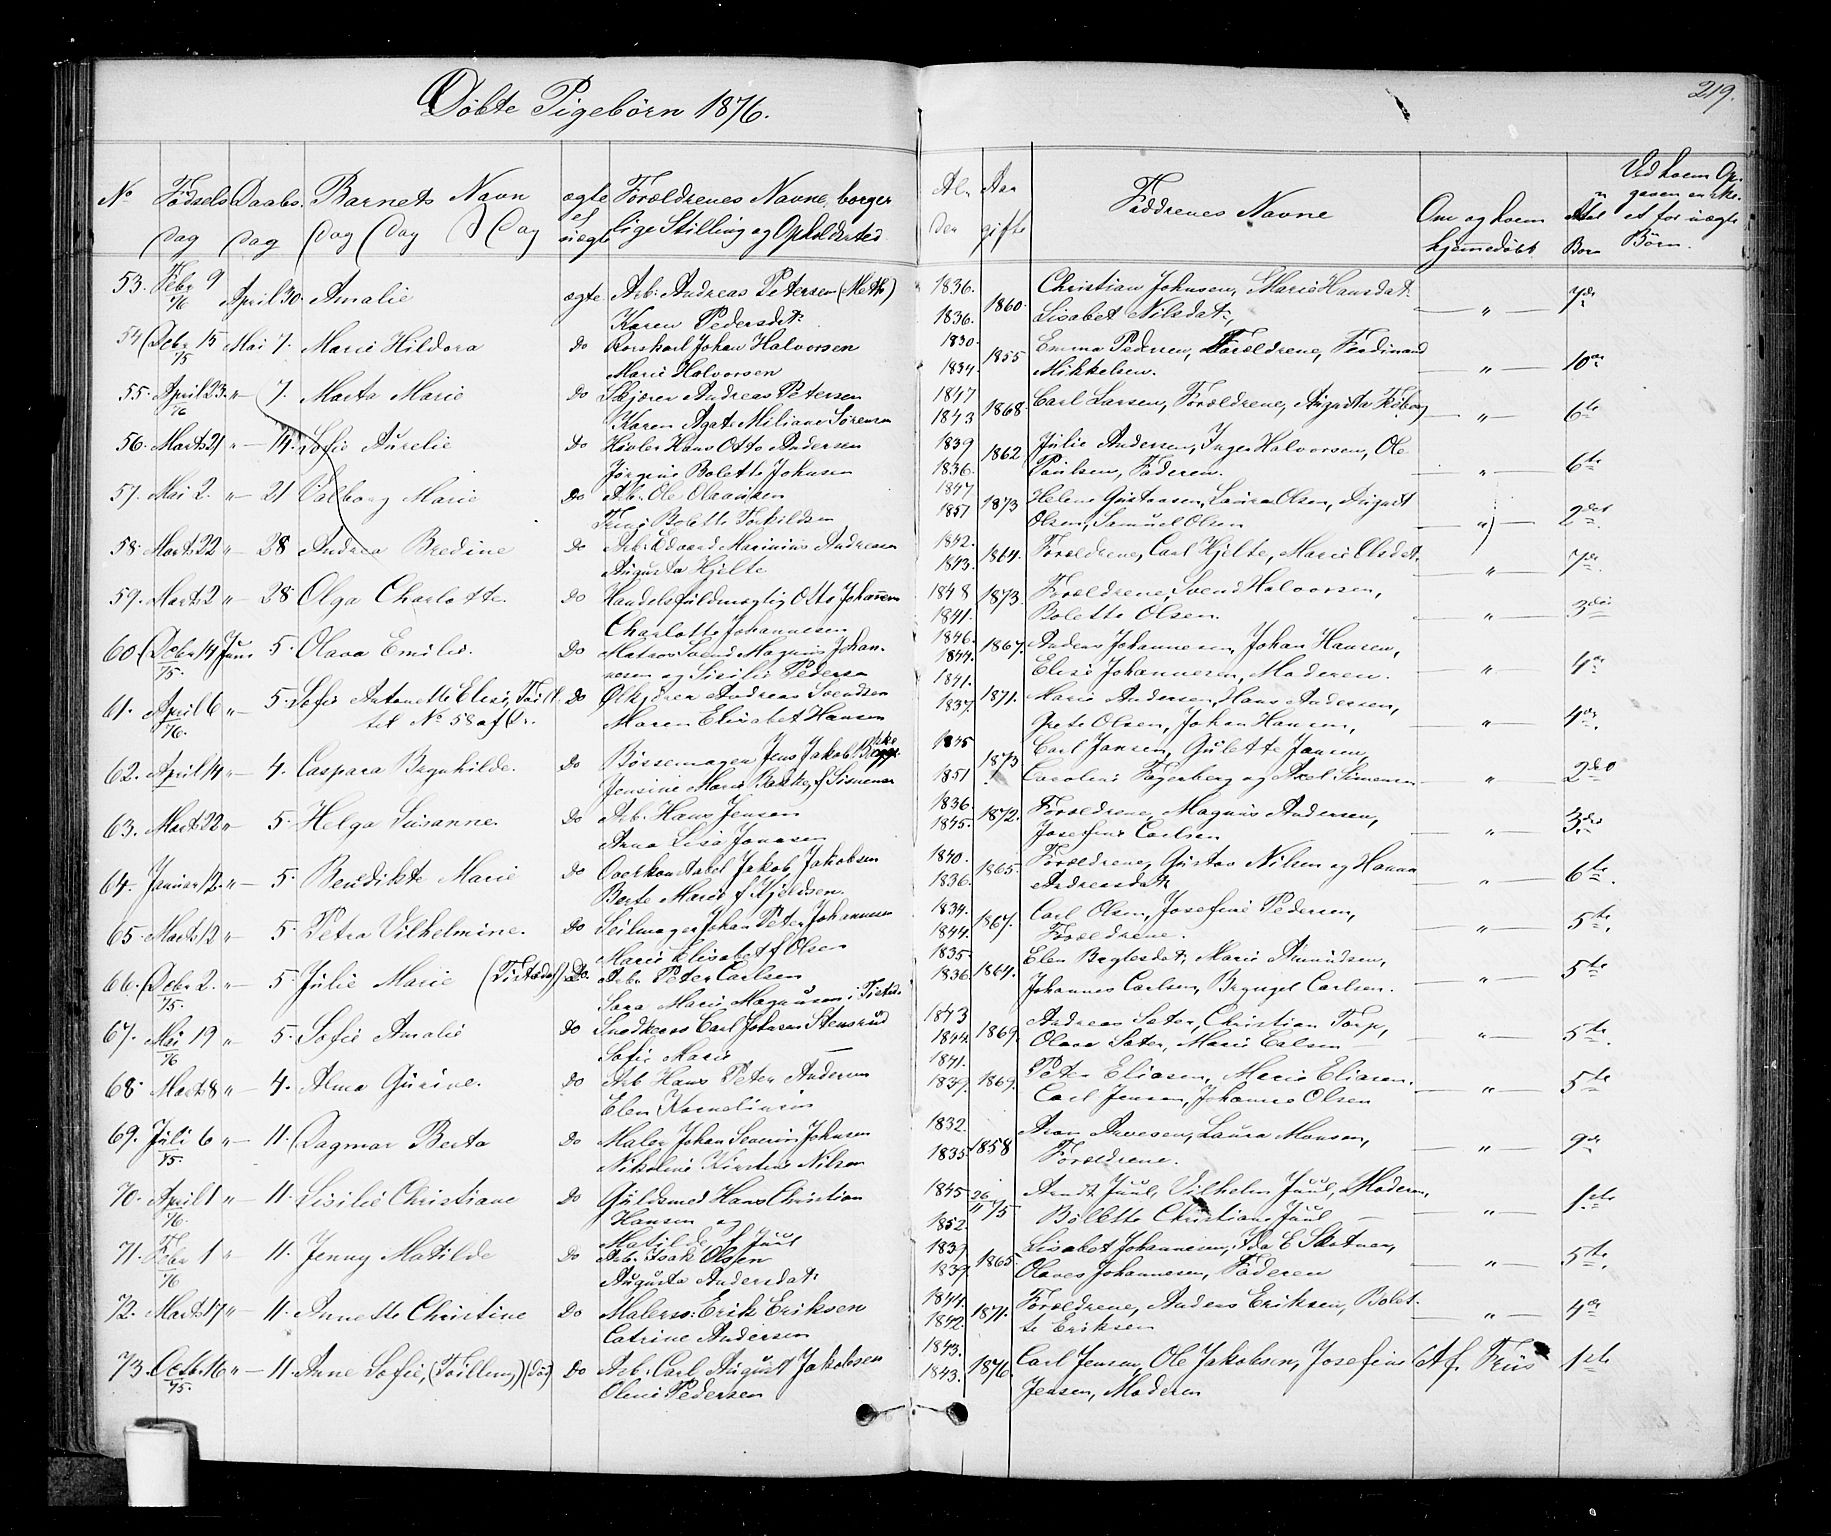 Döbte Pigebörn 1876.
219.
No Fødsels Daabs. Barnets Navn ægte Forældrenes Navne, borger
dag dag ef uægte lige Stilling og Opholdsted
Al Aar Faddrenes Navne Om og hvem Ved hvem Op
der gifte hjemmedöbt Börn.
53. Febr 9 April 30. Amalie ægte Arb. Andreas Petersen (Meth) 1836. 1860. Christian Johnsen, Marie Hansdat.
76 Karen Pedersdt. 1836. Lisabet Nilsdat., — „ — 7de
54 Decbr 15 Mai 7. Marie Hildora Do Johan Halvorsen 1830. 1855 Emma Pedersen, Forældrene, Ferdinand
75 Marie Halvorsen 1834 Mikkelsen. — „ — 10de
55. April 23. „ — 7. Marta Marie Do Skjærer Andreas Petersen 1847 1868. Carl Larsen, Forældrene, Augusta
76 Karen Agate Miliane Sörensen 1843 — „ — 6te
56. Marts 21 „ — 14. Sofie Aurelie Do Hans Otto Andersen 1839 1862 Julie Andersen, Inger Halvorsen, Ole
Jörgine Bolette Johnsen 1836. Paulsen, Faderen. — „ — 6te
57. Mai 2. „ — 21 Valborg Marie Do Arb. Ole Olausen 1847 1873 Helene Gustavsen, Laura Olsen, August
Trine Bolette Torkildsen 1851 Olsen, Samuel Olsen — „ — 2det
58. Marts 22 „ — 28 Andrea Bredine Do Arb. Edvard Marinius Andresen 1842. 1864. Forældrene, Carl Hjelte, Marie Olsdat.
Augusta Hjelte 1843. — „ — 7de
59. Marts 2 „ — 28 Olga Charlotte. Do Handelsfuldmægtig Otto Johannesen 1848 1873. Forældrene, Svend Halvorsen,
Charlotte Johannesen 1841. Bolette Olsen. — „ — 3die
60 Decbr 14 Juni 5. Olava Emilie. Do Matros Svend Magnus Johan- 1846. 1867. Anders Johannesen, Johan Hansen,
75. nesen og Sisilie Pedersen 1844. Elise Johannesen, Moderen. — „ — 4de
61. April 6 „ — 5. Sofie Antonette Elise, Do Andreas Svendsen 1841. 1871. Marie Andersen, Hans Andersen,
76. No 58 af Maren Elisabet Hansen 1837. Grete Olsen, Johan Hansen, — „ — 4de
62. April 14 „ — 4. Caspara Brynhilde. Do Bøssemager Jens Jakob 1845 1873 Carl Jansen, Gulette Jansen,
Jensine Marie Bakke, f. Simensen 1851 Caroline Fagerberg og Axel Simensen „ 2det
63. Marts 22 „ — 5. Helga Susanne. Do Arb. Hans Jensen 1836. 1872. Forældrene, Magnus Andersen,
Anna Lise Jonasen 1845. Josefine Carlsen — „ — 3die
64. Januar 12. „ — 5. Bendikte Marie Do Overkonstabel Jakob Jakobsen 1840. 1865. Forældrene, Gustav Nilsen og Hanna
Berte Marie f. Kjeldsen. 1836. Andreasdat. — „ — 6te.
65. Marts 12 „ — 5. Petra Vilhelmine. Do Seilmager Johan Peter Johannesen 1834. 1867. Carl Olsen, Josefine Pedersen,
Marie Elisabet f. Olsen 1844. Forældrene. — „ — 5te.
66. Decbr 2. „ — 5 Julie Marie (Tistedal) Do. Arb. Peter Carlsen 1835. 1864. Elen Børresdat, Marie Amundsen,
75. Sara Marie Magnusen i Tistedal 1836. Johannes Carlsen, Bryngel Carlsen. — „ — 5te
67. Mai 19 „ — 5. Sofie Amalie Do Snedkersv Carl Johnsen Stensrud 1843 1869. Andreas Sæter, Christian Torp,
76 Sofie Marie — 1844. Olava Sæter, Marie Carlsen — „ — 5te.
68. Marts 8 „ — 4. Alma Gurine. Do Arb Hans Peter Andersen 1841. 1869. Peter Eliasen, Marie Eliasen.
Elen Kornelinsen 1839. Carl Jensen, Johanne Olsen — „ — 5te
69. Juli 6 „ — 11. Dagmar Berta Do Maler Johan Severin Johnsen 1832. 1858 Aron Arvesen, Laura Monsen,
75. Nikoline Kirstine Nilsen 1835. Forældrene. — „ — 9de
70. April 1 „ — 11. Lisilie Christiane Do Guldsmed Hans Christian 1845. 26/11 75 Arndt Juul, Vilhelm Juul, Moderen,
76. Hansen og 1852. Bolette Christiane Juul — — „ — 1ste
Matilde f. Juul
71. Febr 1 „ 11. Jenny Matilde Do Arb. Isak Olsen 1839 1865. Lisabet Johannesen, Ida E Skotnæs,
76 Augusta Andersdat. 1839. Olaves Johannesen, Faderen — „ — 5te.
72. Marts 17 „ — 11. Annette Christine Do Malersv. Erik Eriksen 1844. 1871. Forældrene, Anders Eriksen, Bolet-
Catrine Andersen 1842. te Eriksen — „ — 4de
73. Octbr 16 „ — 11. Anne Sofie, (Tvilling) (död) Do Arb. Carl August Jakobsen 1843. 1876. Carl Jensen, Ole Jakobsen, Josefine Af Friis 1ste
75. Oleni Pedersen 1843. Jensen, Moderen